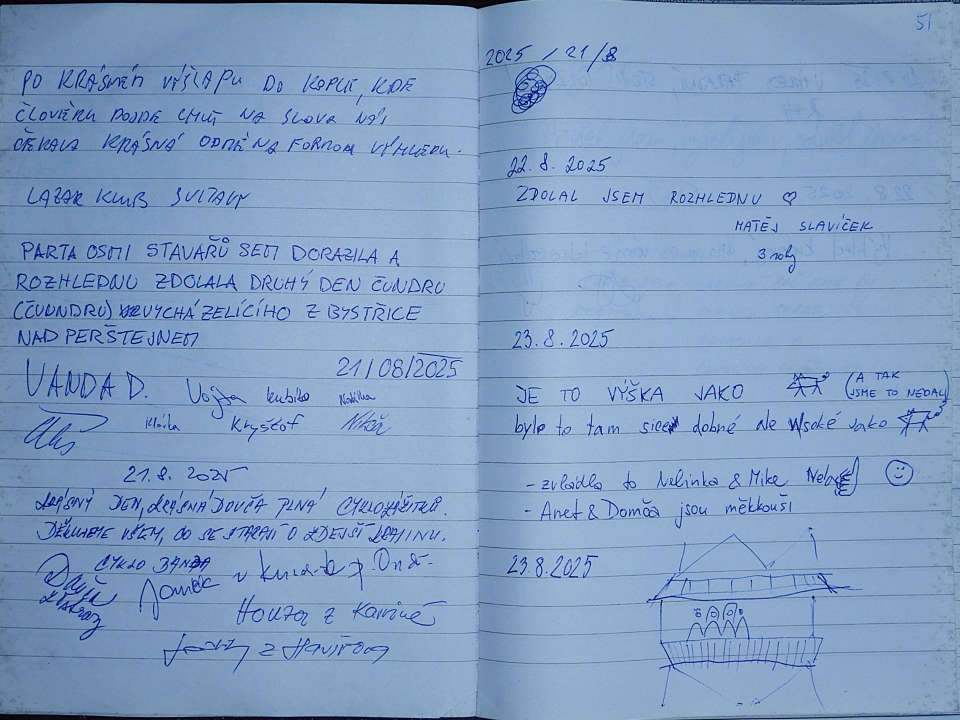 PO KRÁSNÉM VÝŠLAPU DO KOPCE, KDE
ČLOVĚKU DOJDE CHUŤ NA SLOVA NÁS
ČEKALA KRÁSNÁ ODMĚNA FORMOU VÝHLEDU.
LAZAR KLUB SVITAVY
PARTA OSMI STAVAŘŮ SEM DORAZILA A
ROZHLEDNU ZDOLALA DRUHÝ DEN ČUNDRU
(ČUUNDRU) VYCHÁZEJÍCÍHO Z BYSTŘICE
NAD PERŠTEJNEM
21/08/2025
VANDA D. Vojta kubík Natálka
Klárka Kryštof
21.8. 2025
KRÁSNÝ DEN, KRÁSNÁ PLNÁ CYKLOZÁŽITKŮ.
DĚKUJEME VŠEM, CO SE STARAJÍ O ZDEJŠÍ KRAJINU.
CYKLO BANDA
z
Honza z Karviné
z Havířova
51
2025 / 21 / 8
22.8. 2025
ZDOLAL JSEM ROZHLEDNU ♡
MATĚJ SLAVÍČEK
3 roky
23.8.2025
JE TO VÝŠKA JAKO (A TAK
JSME TO NEDALI
bylo to tam sice dobné ale vysoké jako
- zvládla to Nelinka & Mike
- Anet & Domča jsou měkkouši
23.8.2025